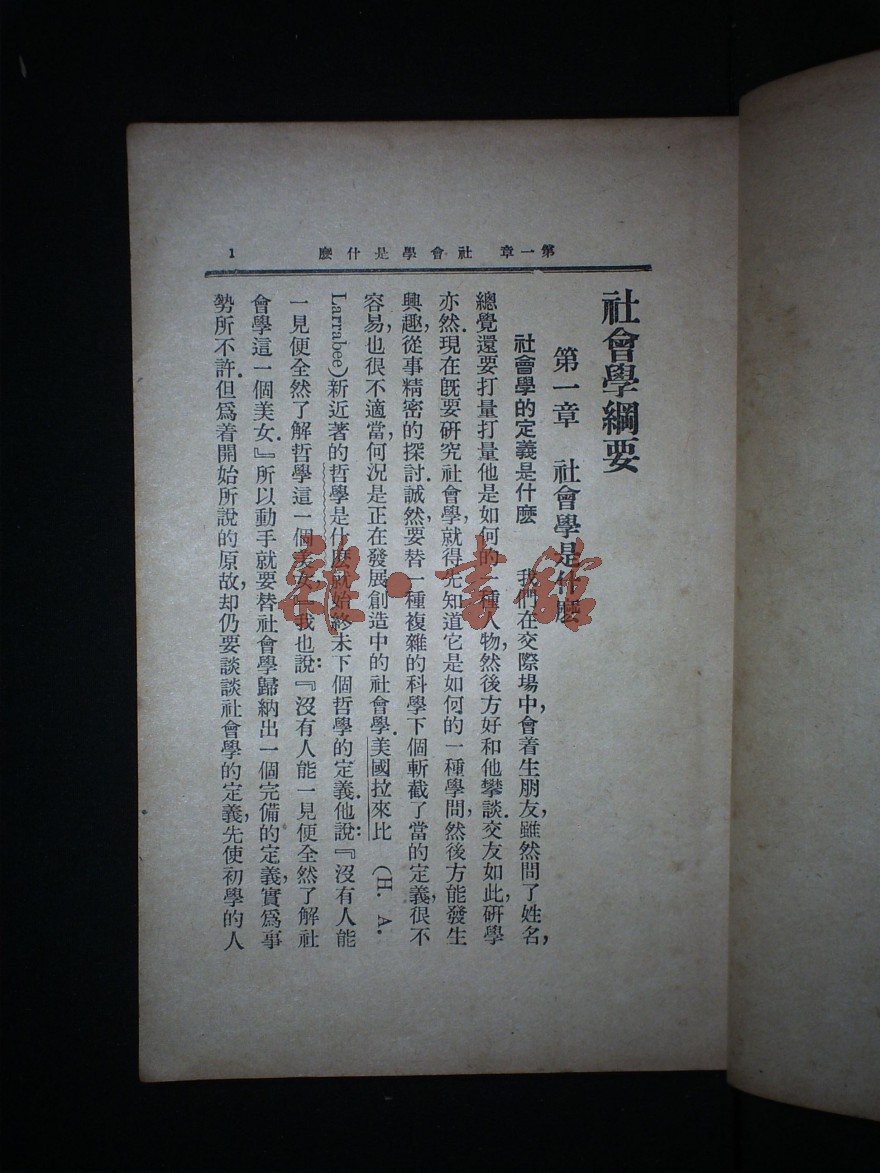 第一章 社會學是什麼 1
社會學綱要
第一章 社會學是什麼
社會學的定義是什麼 我們在交際場中,會着生朋友,雖然問了姓名,
總覺還要打量打量他是如何的一種人物,然後方好和他攀談.交友如此,研學
亦然.現在旣要研究社會學,就得先知道它是如何的一種學問,然後方能發生
興趣,從事精密的探討.誠然,要替一種複雜的科學下個斬截了當的定義,很不
容易,也很不適當,何況是正在發展創造中的社會學.美國拉來比 (H. A.
Larrabee)新近著的哲學是什麼就始終未下個哲學的定義.他說:『沒有人能
一見便全然了解哲學這一個美女』我也說:『沒有人能一見便全然了解社
會學這一個美女.』所以動手就要替社會學歸納出一個完備的定義,實爲事
勢所不許.但爲着開始所說的原故,却仍要談談社會學的定義,先使初學的人
雜·書館